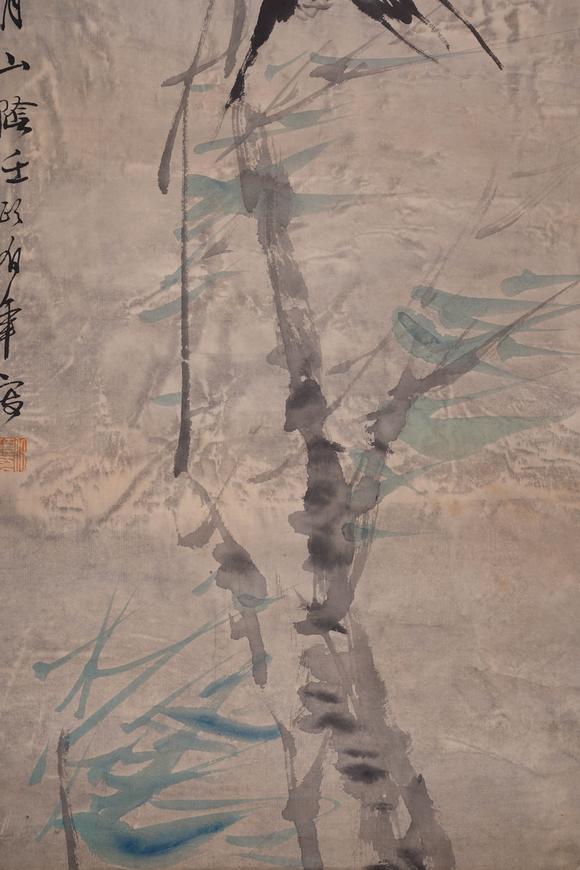 月山陰任頤伯年寫